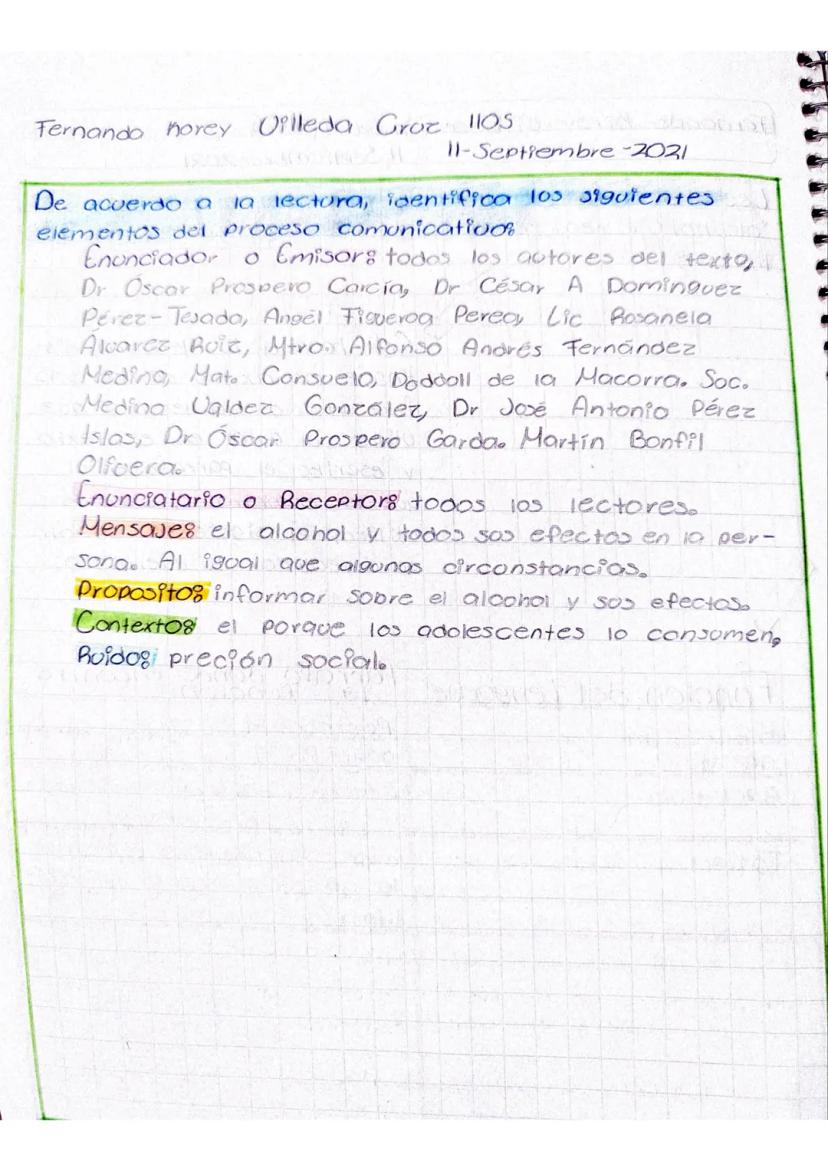 Fernando norey Villeda Cruz 1105
11-Septiembre-2021
De acuerdo a la lectura, identifica los siguientes
elementos del proceso comunicativo:
Enunciador o Emisor: todos los autores del texto,
Dr Óscar Prospero García, Dr César A Domínguez
Pérez-Tejada, Angél Figueroa Perea, Lic Rosanela
Álvarez Ruiz, Mtro. Alfonso Andrés Fernández
Medina, Mat. Consuelo, Doddoll de la Macorra. Soc.
Medina Valdez González, Dr José Antonio Pérez
Islas, Dr Óscar Prospero Garda. Martín Bonfil
Olivera.
Enunciatario o Receptor: todos los lectores.
Mensaje: el alcohol y todos sus efectos en la per-
sona. Al igual que algunas circunstancias.
Proposito: informar sobre el alcohol y sus efectos.
Contexto: el porque los adolescentes lo consumen,
Ruido: preción social.